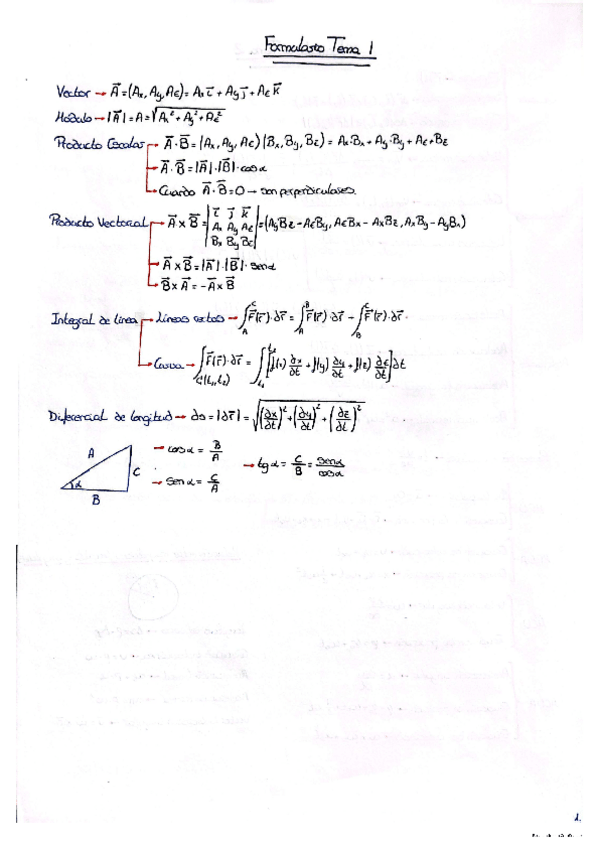 Formulario Tema 1
Vector → A⃗ = (Ax, Ay, Az) = Ax i⃗ + Ay j⃗ + Az k⃗
Módulo → |A⃗| = A = √(Ax² + Ay² + Az²)
Producto Escalar → A⃗ · B⃗ = (Ax, Ay, Az)(Bx, By, Bz) = Ax·Bx + Ay·By + Az·Bz
→ A⃗ · B⃗ = |A⃗| · |B⃗| · cos α
→ Cuando A⃗ · B⃗ = 0 → son perpendiculares.
Producto Vectorial → A⃗ x B⃗ = | i⃗ j⃗ k⃗ / Ax Ay Az / Bx By Bz | = (AyBz - AzBy, AzBx - AxBz, AxBy - AyBx)
→ A⃗ x B⃗ = |A⃗| · |B⃗| · sen α
→ B⃗ x A⃗ = - A⃗ x B⃗
Integral de línea → Líneas rectas → ∫_A^C F⃗(r⃗) · dr⃗ = ∫_A^B F⃗(r⃗) · dr⃗ - ∫_B^C F⃗(r⃗) · dr⃗
→ Curva → ∫ F⃗(r⃗) · dr⃗ = ∫ [f(x) dx/dt + f(y) dy/dt + f(z) dz/dt] dt
Diferencial de longitud → ds = |dr⃗| = √((dx/dt)² + (dy/dt)² + (dz/dt)²)
A
C
B
α
→ cos α = B/A
→ sen α = C/A
→ tg α = C/B = sen α/cos α
1.